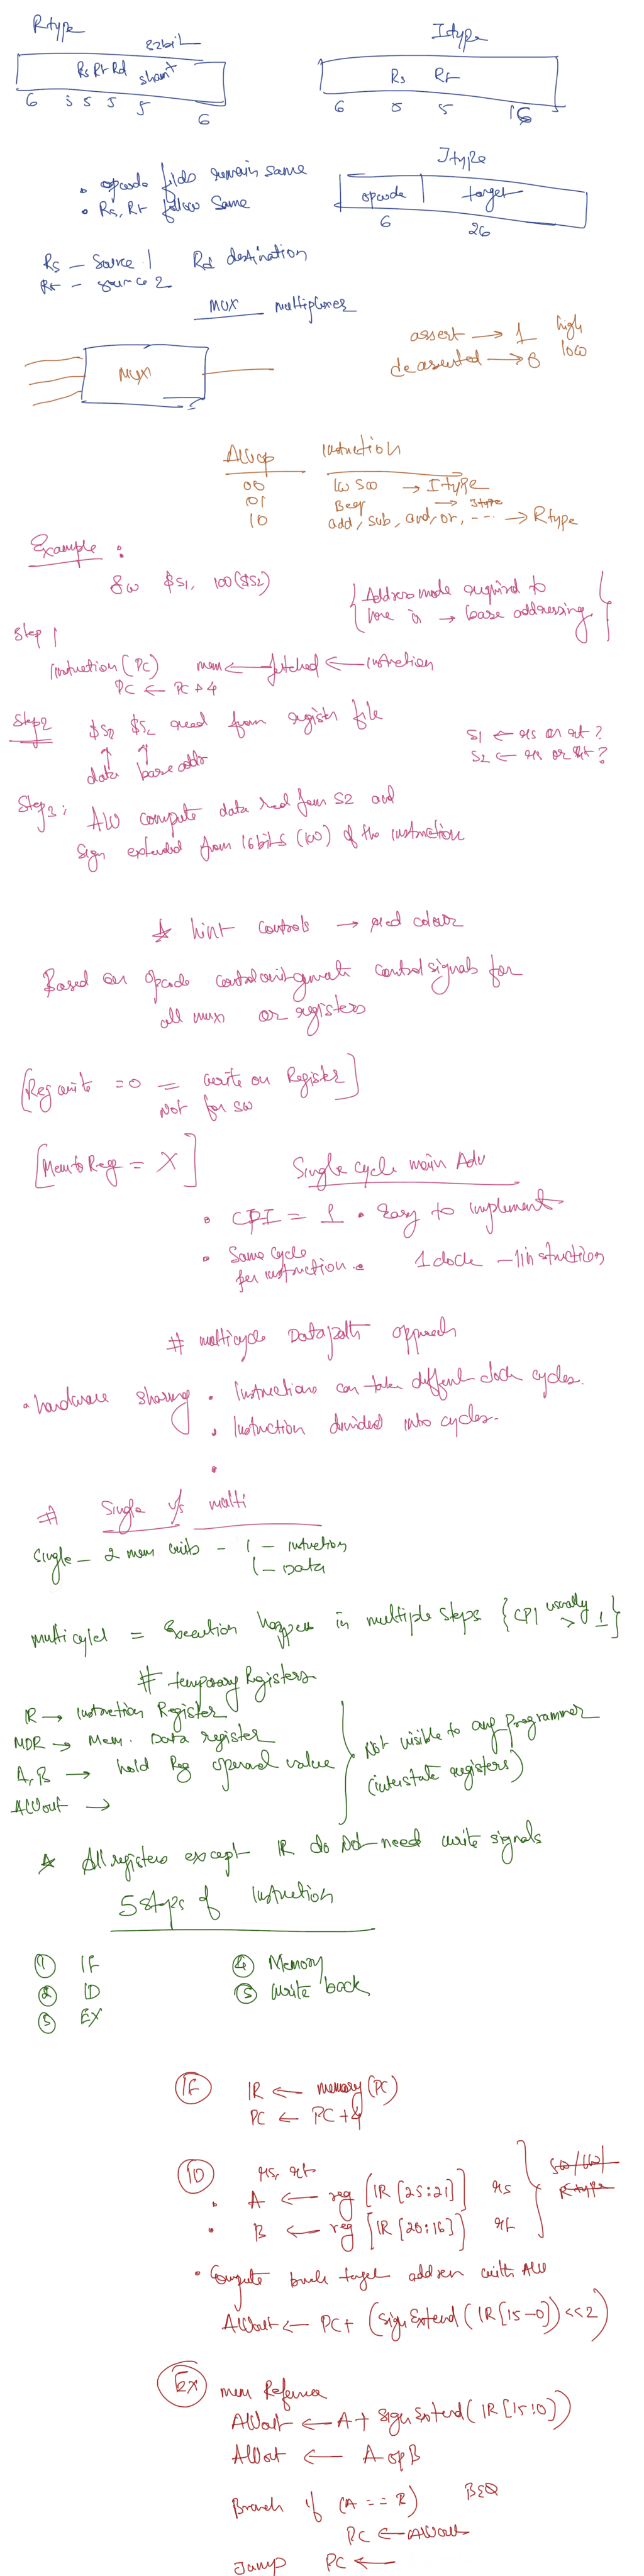 Rtype
32bit
Rs Rt Rd shamt
6 5 5 5 5 6
Itype
Rs Rt
6 5 5 16
• opcode fields remain same
• Rs, Rt follow same
Jtype
opcode target
6 26
Rs – Source 1 Rd destination
Rt – source 2
MUX – multiplexer
MUX
assert → 1 high
deasserted → 0 low
ALUop instruction
00 lw sw → Itype
01 Beq → Itype
10 add, sub, and, or, --- → Rtype
Example :
sw $s1, 100($s2)
{ Address mode required to
here is → base addressing }
Step 1
instruction (PC) mem ← fetched ← instruction
PC ← PC + 4
Step2 $s1 $s2 read from register file
data base addr
S1 ← rs or rt ?
S2 ← rs or rt ?
Step 3: ALU compute data read from S2 and
sign extended from 16 bits (100) of the instruction
* hint controls → red colour
Based on opcode control unit generate control signals for
all mux or registers
[Reg write = 0 = write on Register]
Not for sw
[MemtoReg = X]
Single cycle main Adv
• CPI = 1 • Easy to implement
• Same cycle
per instruction • 1 clock – 1 instruction
# multicycle Datapath approach
• hardware sharing • Instructions can take different clock cycles.
• Instruction divided into cycles.
•
# Single v/s multi
Single – 2 mem units – 1 – instruction
1 – Data
multicycle = Execution happen in multiple steps {CPI usually > 1}
# temporary Registers
IR → Instruction Register
MDR → Mem. Data register
A, B → hold Reg operand value
ALUout →
Not visible to any Programmer
(interstate registers)
* All registers except IR do Not need write signals
5 steps of instruction
① IF
② ID
③ EX
④ Memory
⑤ write back
IF IR ← memory (PC)
PC ← PC + 4
ID rs, rt
• A ← reg [IR [25:21]] rs
• B ← reg [IR [20:16]] rt
sw/lw/
R type
• Compute branch target address with ALU
ALUout ← PC + (sign Extend (IR [15-0]) << 2)
EX mem Reference
ALUout ← A + sign Extend (IR [15:0])
ALUout ← A op B
Branch if (A == B) BEQ
PC ← ALUout
Jump PC ←